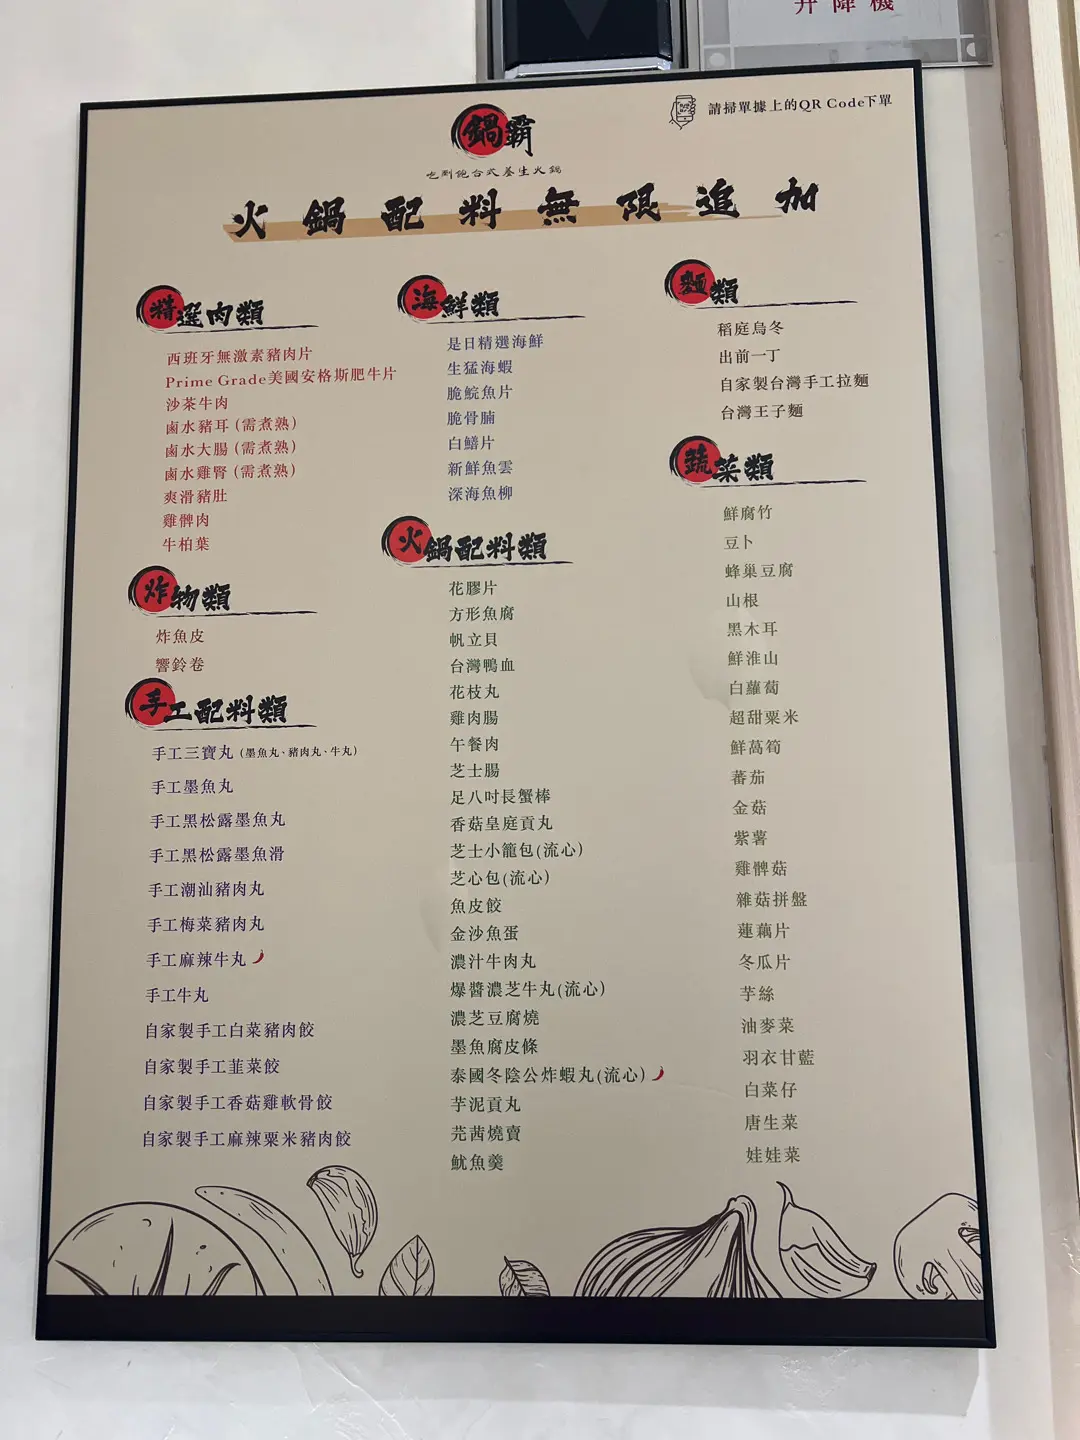 升降機
請掃單據上的QR Code下單
鍋霸
吃到飽台式養生火鍋
火鍋配料無限追加
精選肉類
西班牙無激素豬肉片
Prime Grade美國安格斯肥牛片
沙茶牛肉
鹵水豬耳 (需煮熟)
鹵水大腸 (需煮熟)
鹵水雞腎 (需煮熟)
爽滑豬肚
雞髀肉
牛柏葉
炸物類
炸魚皮
響鈴卷
手工配料類
手工三寶丸 (墨魚丸、豬肉丸、牛丸)
手工墨魚丸
手工黑松露墨魚丸
手工黑松露墨魚滑
手工潮汕豬肉丸
手工梅菜豬肉丸
手工麻辣牛丸
手工牛丸
自家製手工白菜豬肉餃
自家製手工韮菜餃
自家製手工香菇雞軟骨餃
自家製手工麻辣粟米豬肉餃
海鮮類
是日精選海鮮
生猛海蝦
脆鯇魚片
脆骨腩
白鱔片
新鮮魚雲
深海魚柳
火鍋配料類
花膠片
方形魚腐
帆立貝
台灣鴨血
花枝丸
雞肉腸
午餐肉
芝士腸
足八吋長蟹棒
香菇皇庭貢丸
芝士小籠包(流心)
芝心包(流心)
魚皮餃
金沙魚蛋
濃汁牛肉丸
爆醬濃芝牛丸(流心)
濃芝豆腐燒
墨魚腐皮條
泰國冬陰公炸蝦丸(流心)
芋泥貢丸
芫茜燒賣
魷魚羹
麵類
稻庭烏冬
出前一丁
自家製台灣手工拉麵
台灣王子麵
蔬菜類
鮮腐竹
豆卜
蜂巢豆腐
山根
黑木耳
鮮淮山
白蘿蔔
超甜粟米
鮮萵筍
蕃茄
金菇
紫薯
雞髀菇
雜菇拼盤
蓮藕片
冬瓜片
芋絲
油麥菜
羽衣甘藍
白菜仔
唐生菜
娃娃菜